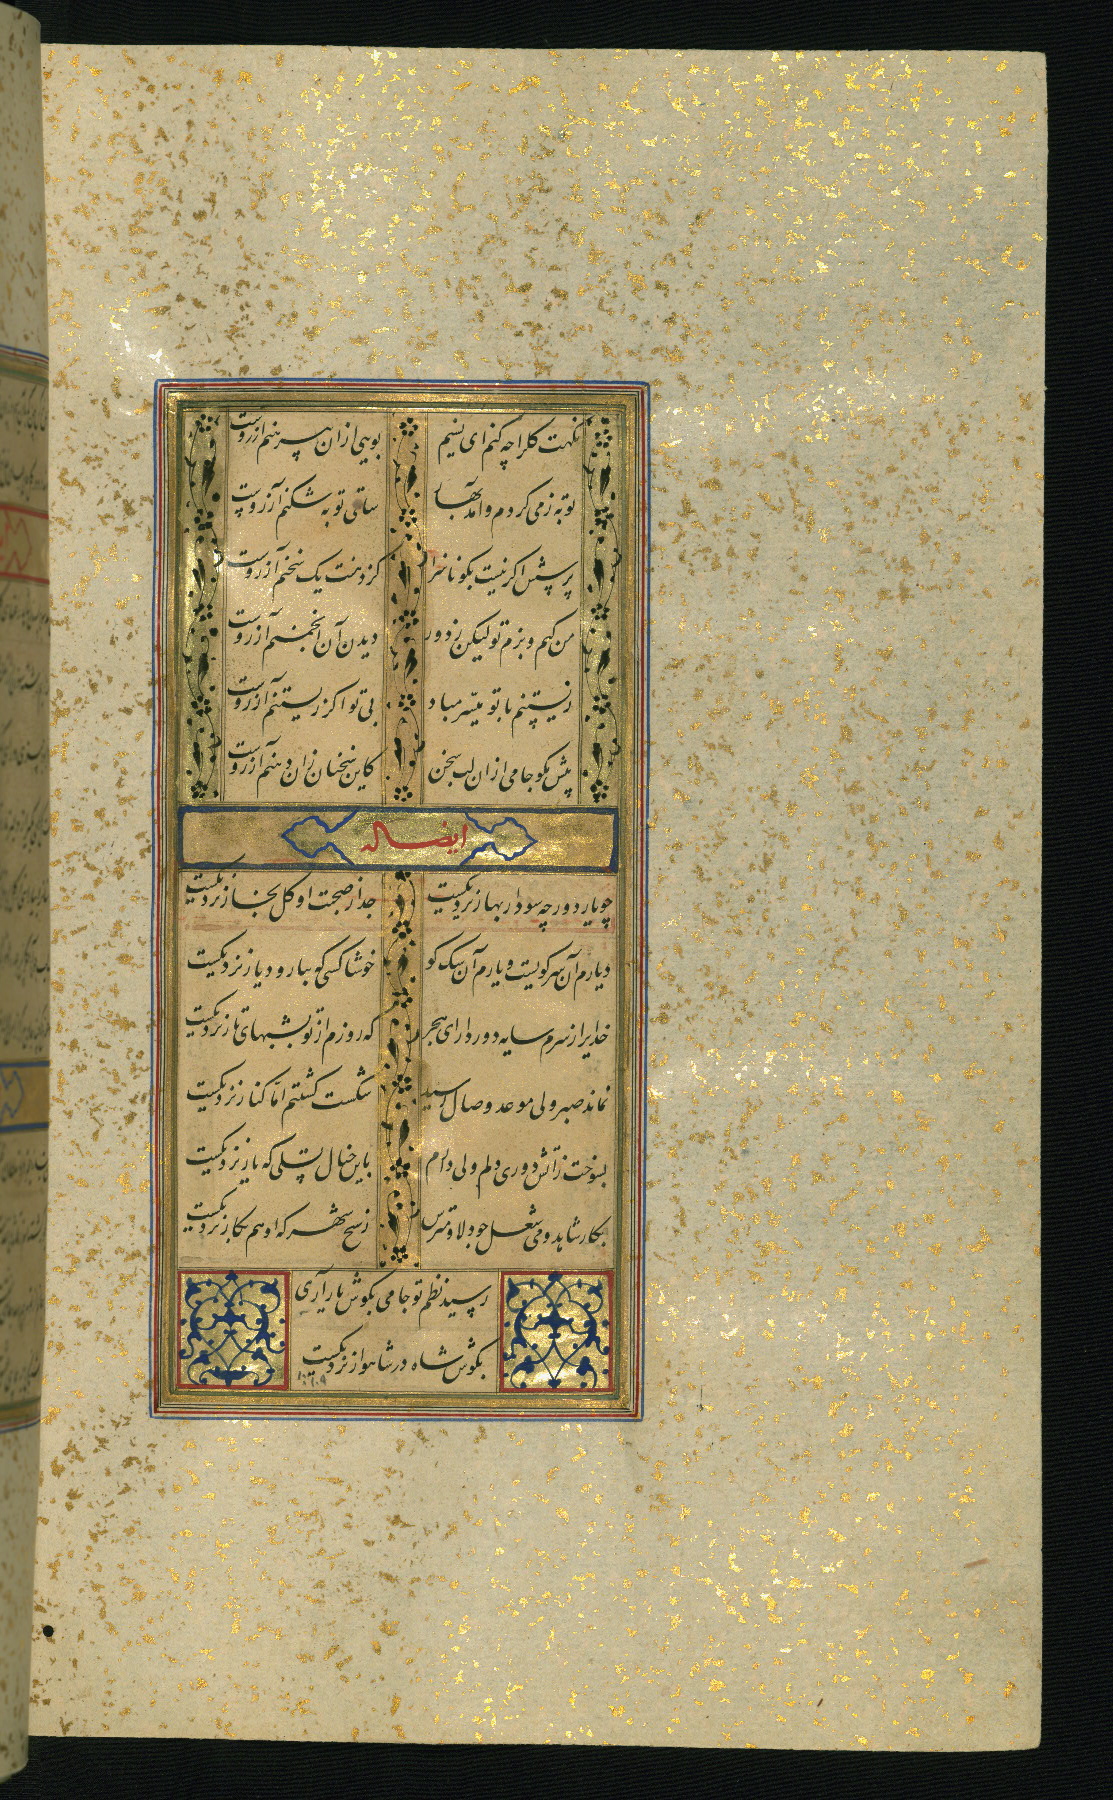 نکهت گل را چه کنم ای نسیم
بویی از آن پیرهنم آرزوست
توبه ز می کردم و آمد بهار
ساقی توبه شکنم آرزوست
پرسش اگر نیست بگو ناسزا
کز دهنت یک سخنم آرزوست
من کیم و بزم تو لیکن ز دور
دیدن آن انجمنم آرزوست
زیستنم با تو میسر مباد
بی تو اگر زیستنم آرزوست
پیش بگو جامی از آن لب سخن
کاین سخنان زان دهنم آرزوست
ایضا له
چو یار دور چه سود ار بهار نزدیکست
جدا ز صحبت او گل بخار نزدیکست
دیارم آن سر کویست و یارم آن سگ کو
خوشا کسی که بیار و دیار نزدیکست
خدایرا ز سرم سایه دور دار ای هجر
که روزم از تو بشبهای تار نزدیکست
نماند صبر ولی موعد وصال رسید
شکست کشتیم اما کنار نزدیکست
بسوخت ز آتش دوری دلم ولی دارم
باین خیال تسلی که یار نزدیکست
بکار شاهد و می شغل جو دلا و مترس
ز شیخ شهر که او هم بکار نزدیکست
رسید نظم تو جامی بگوش یار آری
بگوش شاه در شاهوار نزدیکست